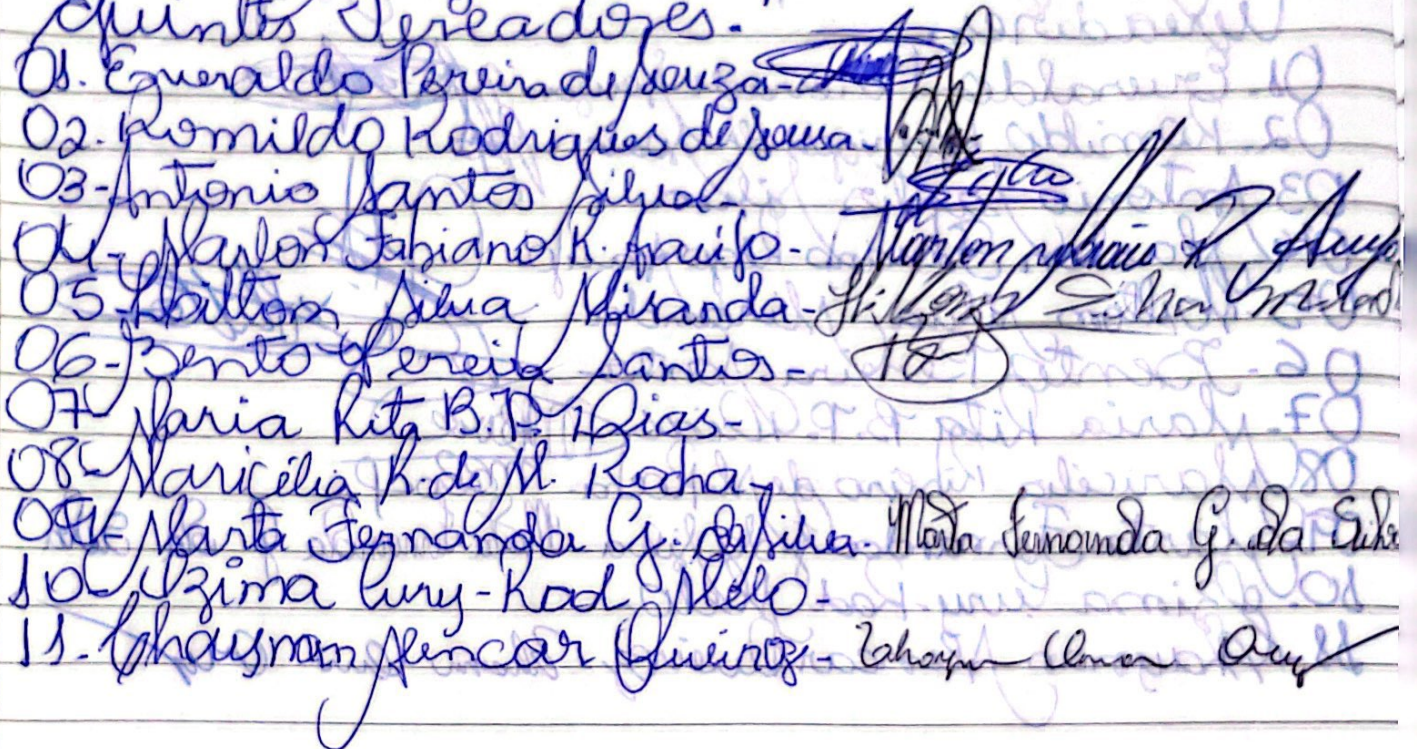 quintes Vereadores.
01. Esmeraldo Pereira de Souza-
02. Romildo Rodrigues de Sousa-
03- Antonio Santos Silva-
04- Marlon Fabiano R. Araujo-
05- Hilton Silva Miranda-
06- Bento Pereira Santos-
07- Maria Rita B.P. Dias-
08- Maricélia R. de M. Rocha-
09- Marta Fernanda G. da Silva- Marta Fernanda G. da Silva
10- Izima Cury-Rad Melo-
11. Thaysnan Alencar Queiroz-